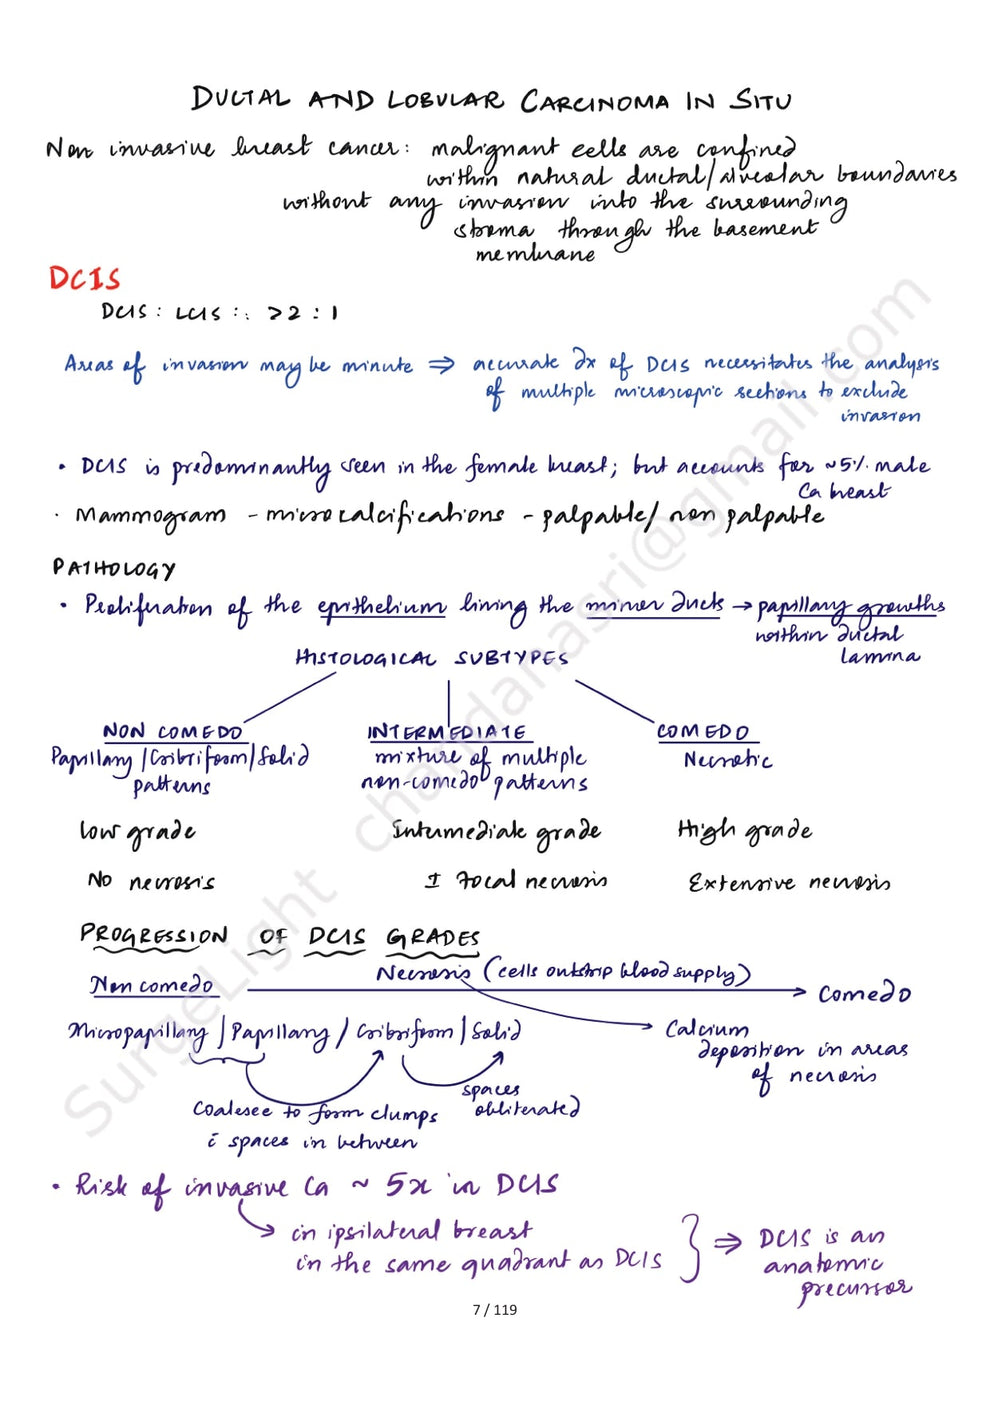 DUCTAL AND LOBULAR CARCINOMA IN SITU
Non invasive breast cancer: malignant cells are confined
within natural ductal/alveolar boundaries
without any invasion into the surrounding
stroma through the basement
membrane
DCIS
DCIS : LCIS :: >2 : 1
Areas of invasion may be minute ⇒ accurate Dx of DCIS necessitates the analysis
of multiple microscopic sections to exclude
invasion
• DCIS is predominantly seen in the female breast; but accounts for ~5% male
Ca breast
• Mammogram - microcalcifications - palpable/ non palpable
PATHOLOGY
• Proliferation of the epithelium lining the minor ducts → papillary growths
within ductal
lamina
HISTOLOGICAL SUBTYPES
NON COMEDO INTERMEDIATE COMEDO
Papillary/Cribriform/Solid mixture of multiple Necrotic
patterns non-comedo patterns
Low grade Intermediate grade High grade
No necrosis I focal necrosis Extensive necrosis
PROGRESSION OF DCIS GRADES
Necrosis (cells outstrip blood supply)
Non comedo → Comedo
Micropapillary / Papillary / Cribriform / Solid Calcium
deposition in areas
of necrosis
spaces
obliterated
Coalesce to form clumps
c̄ spaces in between
• Risk of invasive Ca ~ 5x in DCIS
in ipsilateral breast
in the same quadrant as DCIS
⇒ DCIS is an
anatomic
precursor
7 / 119
SurgeLight chandanasri@gmail.com